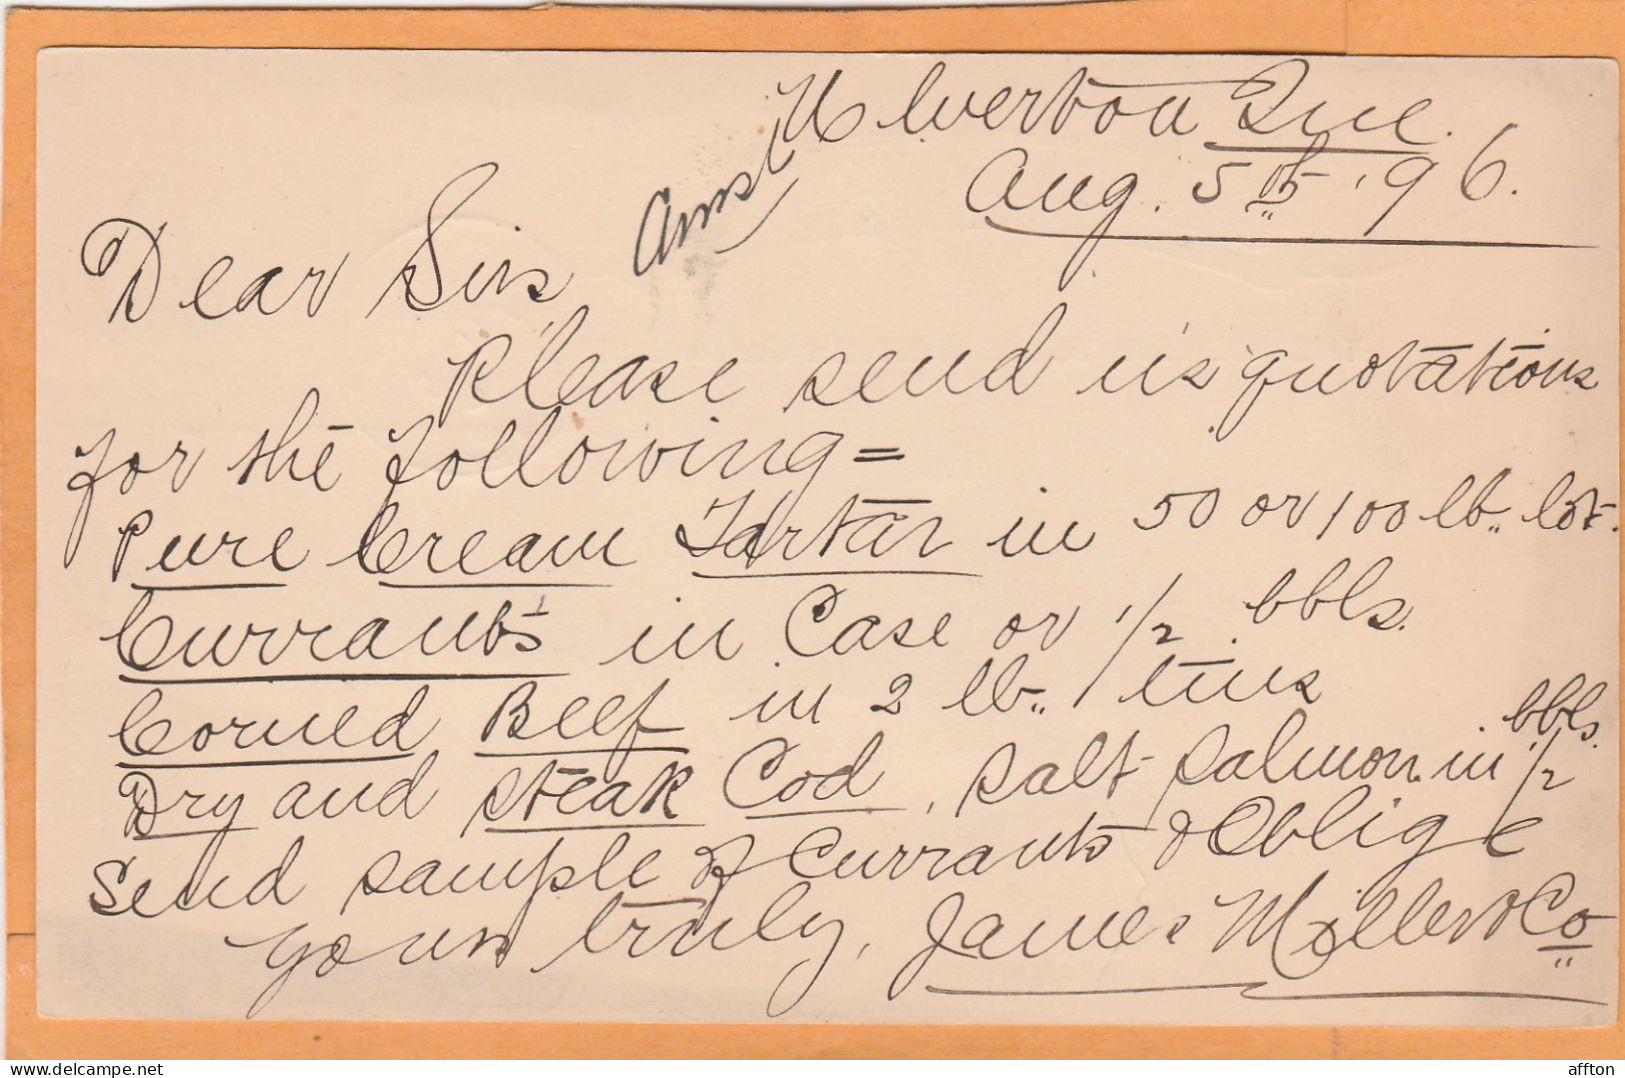 Ulverton Que.
Aug. 5th '96.
Ans
Dear Sirs,
Please send us quotations
for the following =
Pure Cream Tartar in 50 or 100 lb. lot.
Currants in Case or 1/2 bbls.
Corned Beef in 2 lb. tins
Dry and Steak Cod, Salt Salmon in 1/2 bbls.
Send sample of Currants & Oblige
Yours truly, James Miller & Co
affton
https://www.delcampe.net